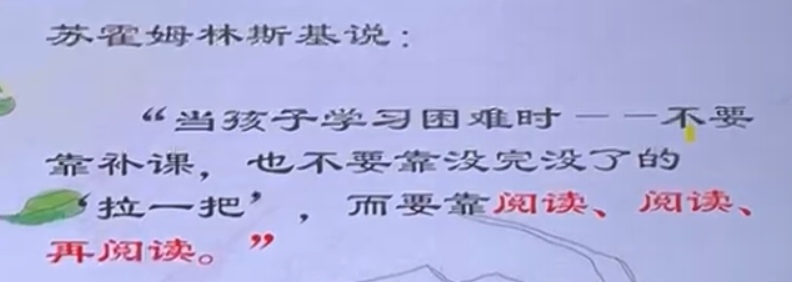 苏霍姆林斯基说：
“当孩子学习困难时——不要
靠补课，也不要靠没完没了的
‘拉一把’，而要靠阅读、阅读、
再阅读。”